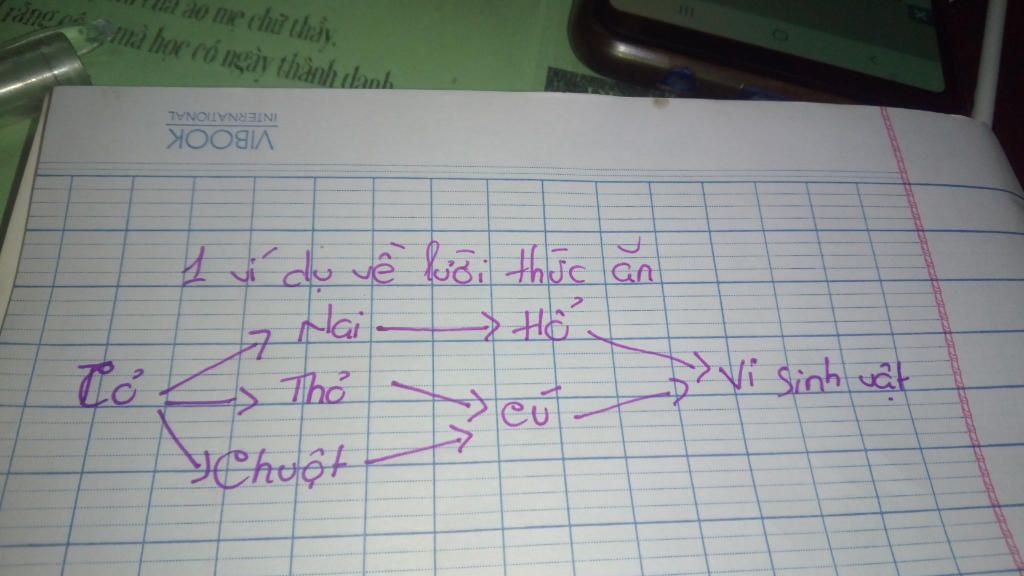 áo mẹ chữ thầy.
mà học có ngày thành danh
VIBOOK
INTERNATIONAL
1 ví dụ về lưới thức ăn
Nai → Hổ
Cỏ → Thỏ → cú → Vi sinh vật
Chuột